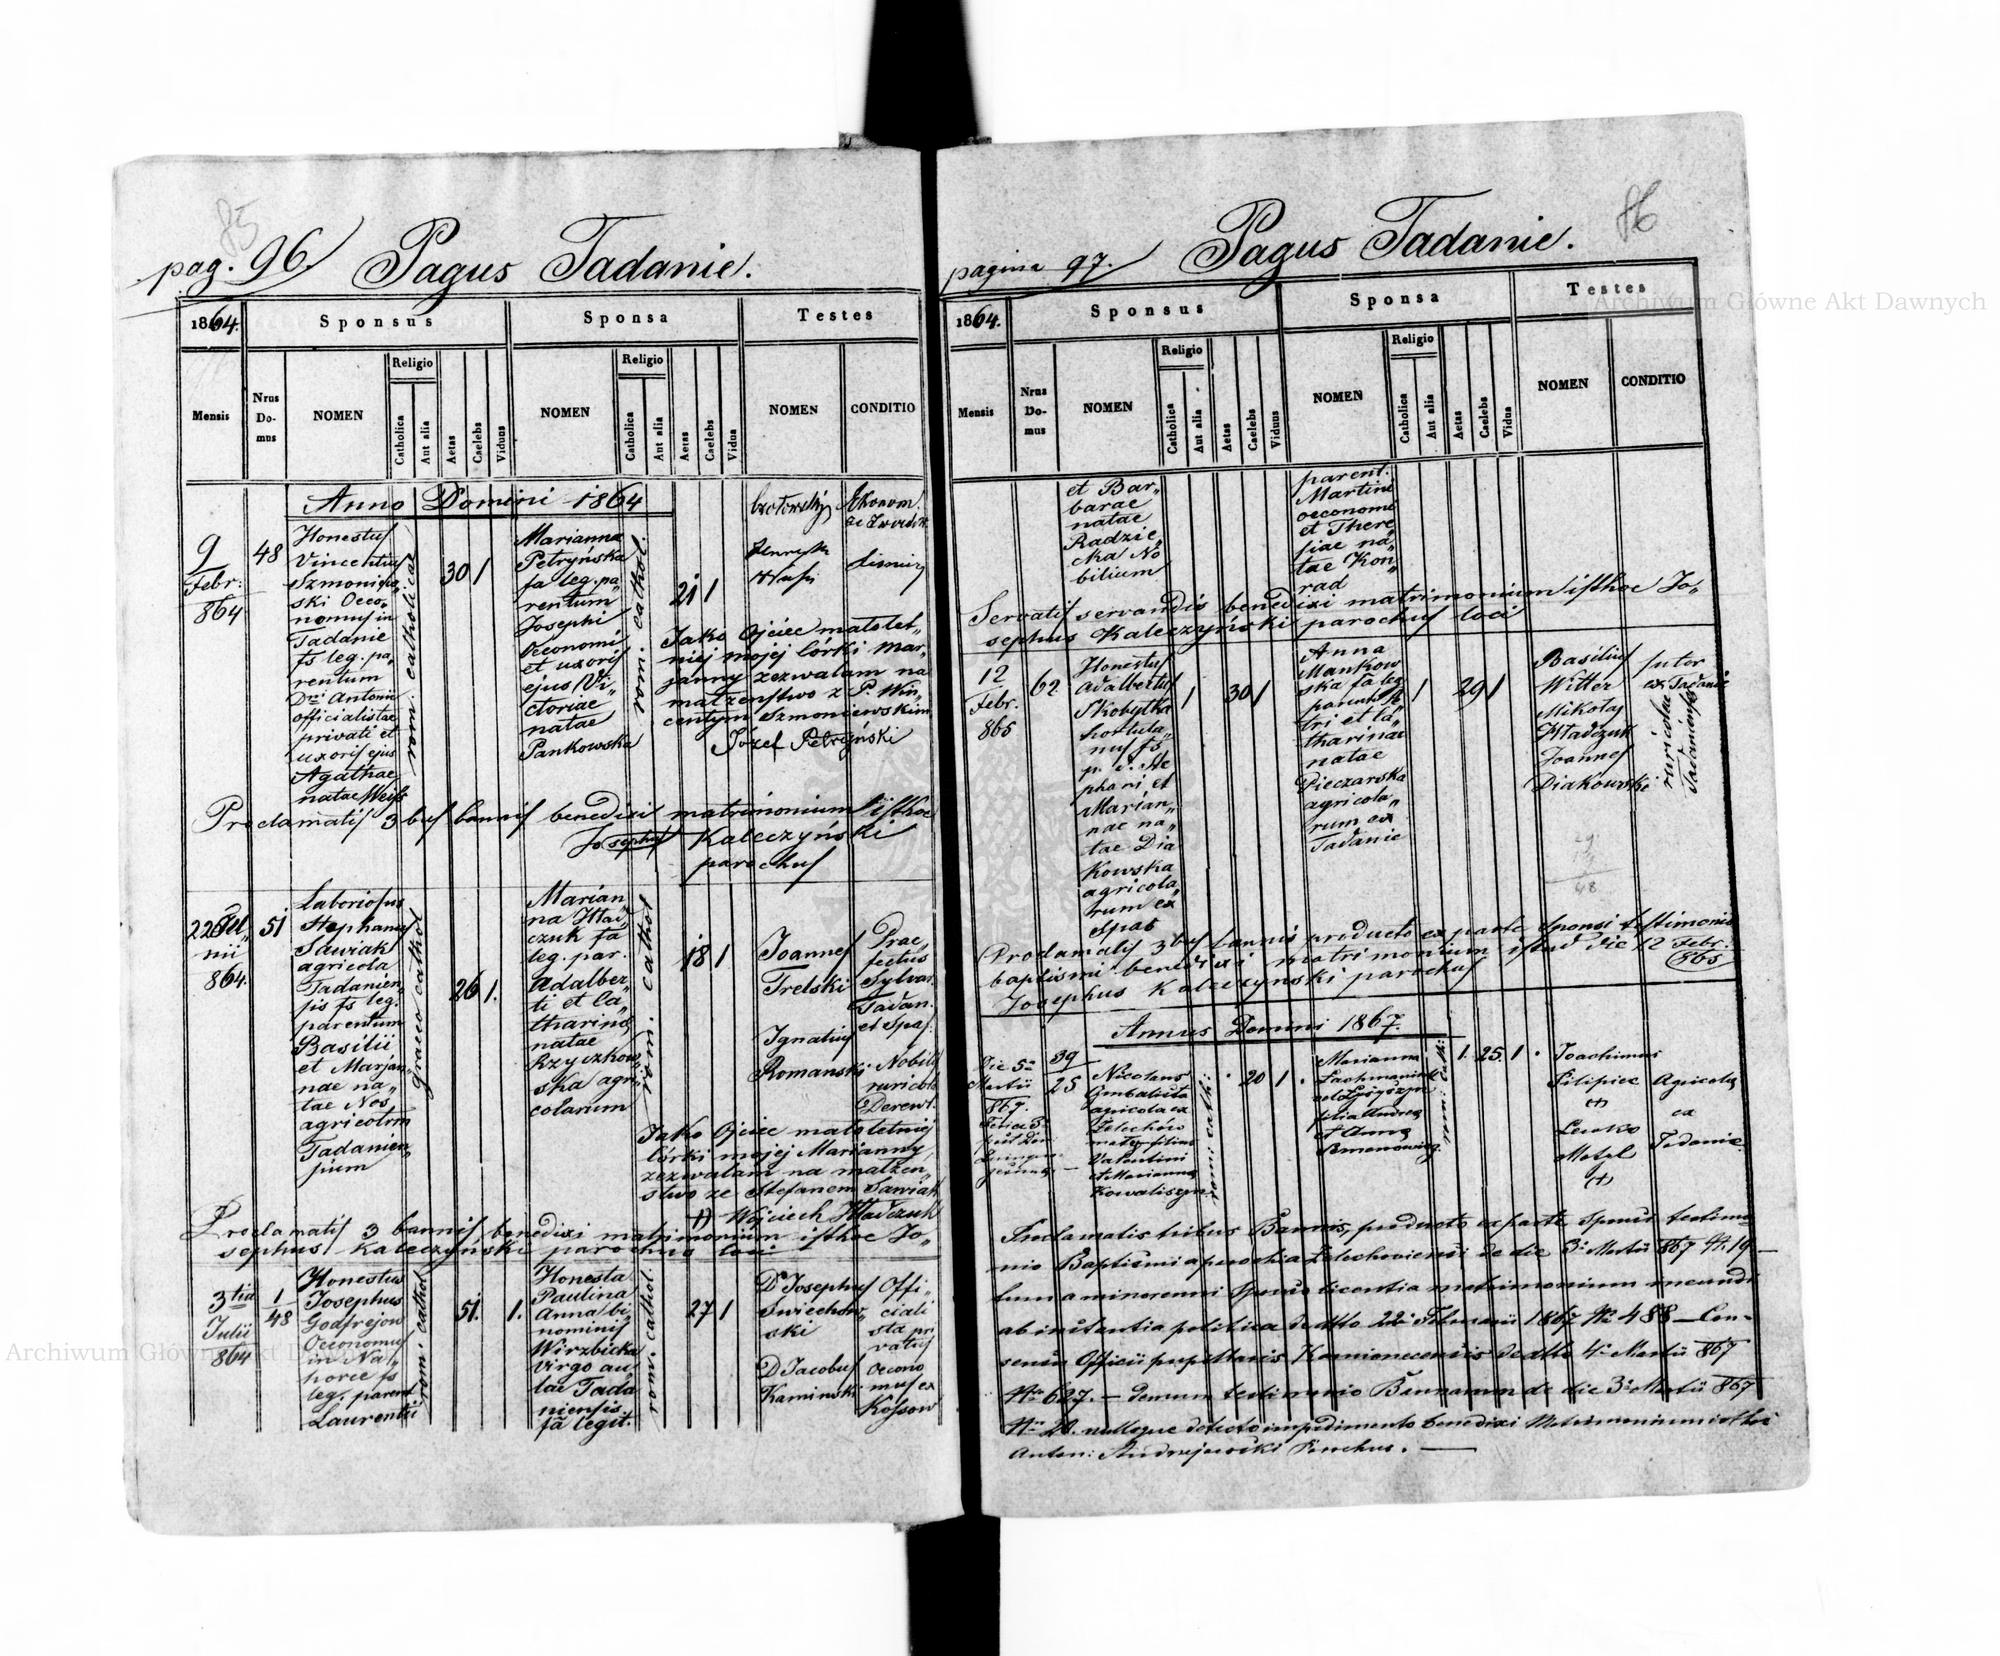 85
pag. 96.
Pagus Tadanie.
1864.
Sponsus
Sponsa
Testes
Mensis
Nrus Domus
NOMEN
Religio
Catholica
Aut alia
Aetas
Caelebs
Viduus
NOMEN
Religio
Catholica
Aut alia
Aetas
Caelebs
Vidua
NOMEN
CONDITIO
Anno Domini 1864
9
Febr:
864
48
Honestus
Vincentius
Szmoniew„
ski Oeco„
nomus in
Tadanie
fs leg. pa„
rentum
Dni Antonii
officialistae
privati et
uxoris ejus
Agathae
natae Weiss
rom. catholica
30 1
Marianna
Petryńska
fa leg. pa„
rentum
Josephi
Oeconomi
et uxoris
ejus Vi„
ctoriae
natae
Pankowska
rom. cathol
21 1
Ekonom.
Henryk
Jako Ojciec małolet„
niej mojej Córki Mar„
janny zezwalam na
małzeństwo z P. Win„
centym Szmoniewskim
Józef Petryński
Proclamatis 3bus bannis benedixi matrimonium isthoc
Josephus Kaleczyński
parochus
22 Ju„
nii
864.
51
Laboriosus
Stephanus
Sawiak
agricola
Tadanien„
sis fs leg.
parentum
Basilii
et Marjan„
nae na„
tae Nos
agricolrm
Tadanien„
sium
graeco cathol
26 1.
Marian„
na Hład„
czuk fa
leg. par.
Adalber„
ti et Ca„
tharinae
natae
Krzyczkow„
ska agri„
colarum
rom. cathol
18 1
Joannes
Trelski
Prae„
fectus
Sylvar.
Tadan.
et Spas.
Ignatius
Romanski
Nobilis
ruricola
Derewl.
Jako Ojciec małoletniej
Córki mojej Marianny,
zezwalam na małżen„
stwo ze Stefanem Sawiak
+) Wojciech Hładczuk
Proclamatis 3 bannis, benedixi matrimonium isthoc Jo„
sephus Kaleczyński parochus loci
3tia
Julii
864
1
48
Honestus
Josephus
Godfrejow
Oeconomus
in Na„
horce fs
leg. parent
Laurentii
rom. cathol
51. 1.
Honesta
Paulina
Anna bi„
nominis
Wirzbicka
virgo au„
lae Tada
niensis
fa legit.
rom. cathol.
27 1
D Josephus
Swiechow„
ski
Offi„
ciali
sta pri„
vatus
D Jacobus
Kaminski
Oecono
mus ex
Kossow
86
pagina 97.
Pagus Tadanie.
1864.
Sponsus
Sponsa
Testes
Mensis
Nrus Domus
NOMEN
Religio
Catholica
Aut alia
Aetas
Caelebs
Viduus
NOMEN
Religio
Catholica
Aut alia
Aetas
Caelebs
Vidua
NOMEN
CONDITIO
et Bar„
barae
natae
Radzie„
cka No
bilium
parent.
Martini
oeconomi
et There„
siae na„
tae Kon„
rad
Servatis servandis benedixi matrimonium isthoc Jo„
sephus Kaleczyński parochus loci
12
Febr.
865
62
Honestus
Adalbertus
Skobylka
hortula„
nus fs
p. d. Ste
phani et
Marian„
nae na„
tae Dia
kowska
agricola„
rum ex
Spas
1 30 1
Anna
Mankow
ska fa leg
parent Pe„
tri et Ca„
tharinae
natae
Pieczarska
agricola„
rum ex
Tadanie
1 29 1
Basilius
Witter
Mikołaj
Hładczuk
Joannes
Diakowski
sutor
ex Tadanie
ruricolae
Tadanienses
68
Proclamatis 3bus bannis producto ex parte Sponsi testimonio
baptismi benedixi matrimonium istud die 12 Febr.
865
Josephus Kaleczynski parochus
Annus Domini 1867.
Die 5a
Martii
867.
39
25
Nicolaus
Cymbalista
agricola ex
Zelechów
filius
Valentini
et Marianna
Kowaliszyn
rom: cath:
20 1
Marianna
filia Andrea
et Anna
rom: cath:
1. 25. 1
Joachimus
Filipiec
(+)
Lesko
Motyl
(+)
Agricola
ex
Tadanie
Proclamatis tribus Bannis, producto ex parte Sponsi testimo„
nio Baptismi a parochia Zelechoviensi de die 3 Martii 867 N 19 —
tum a minorenni Sponso licentia matrimonium ineundi
ab instantia politica de dtto 22 Februarii 1867 N 488 — Con„
sensu Officii pupillaris Kamionecensis de dtto 4 Martii 867
No 627. — demum testimonio Bannorum de die 3 Martii 867
No 20. nulloque detecto impedimento benedixi Matrimonium isthoc
Anton: Andrzejowski Parochus. —
Archiwum Główne Akt Dawnych
Archiwum Główne Akt Dawnych